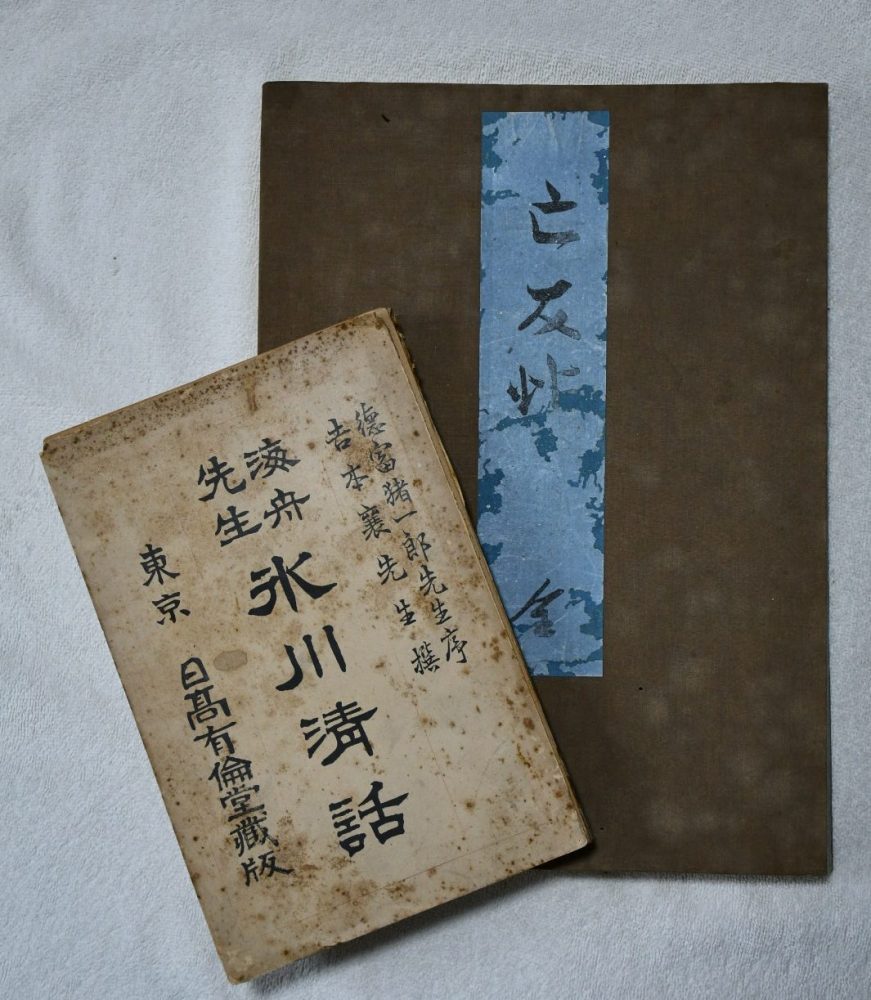 亡友帖
全
德富猪一郎先生序
吉本襄先生撰
海舟
先生
氷川清話
東京 日髙有倫堂藏版